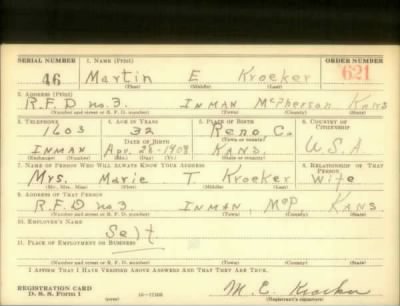 SERIAL NUMBER 1. NAME (Print) ORDER NUMBER
46 Martin E Kroeker 621
(First) (Middle) (Last)
2. ADDRESS (Print)
R.F.D no.3. INMAN McPherson KANS
(Number and street or R. F. D. number) (Town) (County) (State)
3. TELEPHONE 4. AGE IN YEARS 5. PLACE OF BIRTH 6. COUNTRY OF CITIZENSHIP
1603 32 Reno C.
DATE OF BIRTH (Town or county)
INMAN Apr. 28-1908 KANS. U.S.A.
(Exchange) (Number) (Mo.) (Day) (Yr.) (State or country)
7. NAME OF PERSON WHO WILL ALWAYS KNOW YOUR ADDRESS 8. RELATIONSHIP OF THAT PERSON
Mrs. Marie T Kroeker Wife
(Mr., Mrs., Miss) (First) (Middle) (Last)
9. ADDRESS OF THAT PERSON
R.F.D no.3 INMAN, McP KANS
(Number and street or R. F. D. number) (Town) (County) (State)
10. EMPLOYER'S NAME
Self
11. PLACE OF EMPLOYMENT OR BUSINESS
(Number and street or R. F. D. number) (Town) (County) (State)
I AFFIRM THAT I HAVE VERIFIED ABOVE ANSWERS AND THAT THEY ARE TRUE.
REGISTRATION CARD M. E. Kroeker
D. S. S. Form 1 (over) (Registrant's signature)